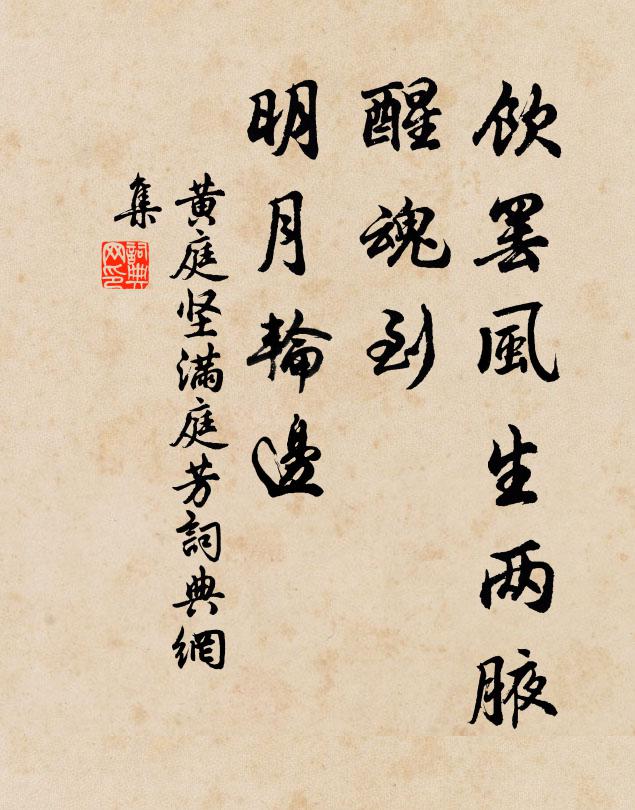 飲罷風生两腋
醒魂到
明月輪邊
黄庭坚滿庭芳詞典網
集
詞典
网印